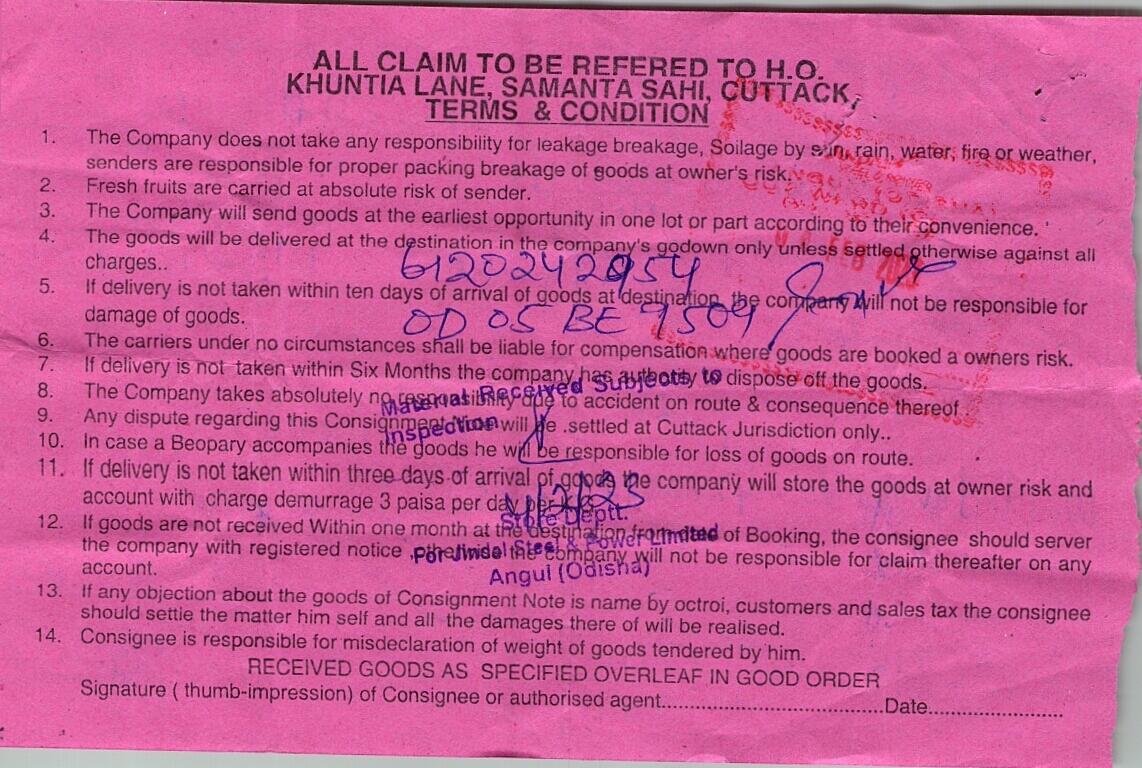 ALL CLAIM TO BE REFERED TO H.O.
KHUNTIA LANE, SAMANTA SAHI, CUTTACK,
TERMS & CONDITION
1. The Company does not take any responsibility for leakage breakage, Soilage by sun, rain, water, fire or weather,
senders are responsible for proper packing breakage of goods at owner's risk.
2. Fresh fruits are carried at absolute risk of sender.
3. The Company will send goods at the earliest opportunity in one lot or part according to their convenience.
4. The goods will be delivered at the destination in the company's godown only unless settled otherwise against all
charges..
6120242954
5. If delivery is not taken within ten days of arrival of goods at destination, the company will not be responsible for
damage of goods.
OD 05 BE 9509
6. The carriers under no circumstances shall be liable for compensation where goods are booked a owners risk.
7. If delivery is not taken within Six Months the company has authority to dispose off the goods.
Material Received Subjects to
8. The Company takes absolutely no responsibility due to accident on route & consequence thereof
9. Any dispute regarding this Consignment will be .settled at Cuttack Jurisdiction only..
Inspection
10. In case a Beopary accompanies the goods he will be responsible for loss of goods on route.
11. If delivery is not taken within three days of arrival of goods the company will store the goods at owner risk and
account with charge demurrage 3 paisa per day per
4/2/23
Store Deptt.
12. If goods are not received Within one month at the destination from of Booking, the consignee should server
For Jindal Steel & Power Limited
the company with registered notice , the company will not be responsible for claim thereafter on any
account.
Angul (Odisha)
13. If any objection about the goods of Consignment Note is name by octroi, customers and sales tax the consignee
should settie the matter him self and all the damages there of will be realised.
14. Consignee is responsible for misdeclaration of weight of goods tendered by him.
RECEIVED GOODS AS SPECIFIED OVERLEAF IN GOOD ORDER
Signature ( thumb-impression) of Consignee or authorised agent..........................................Date.........................